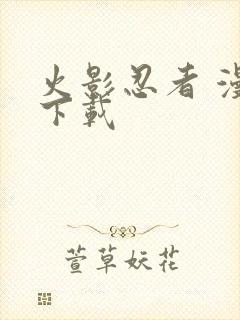 火影忍者 漫
下載
萱草妖花